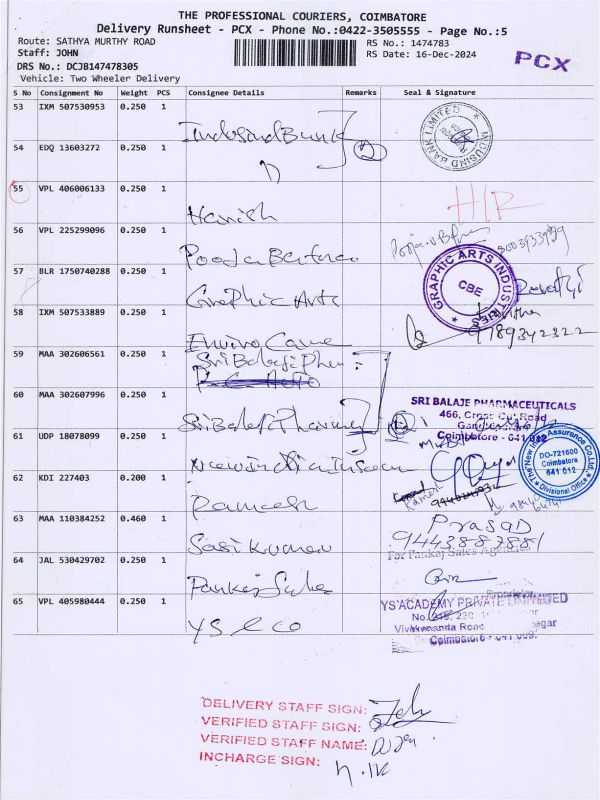 THE PROFESSIONAL COURIERS, COIMBATORE
Delivery Runsheet - PCX - Phone No.:0422-3505555 - Page No.:5
Route: SATHYA MURTHY ROAD
RS No.: 1474783
Staff: JOHN
RS Date: 16-Dec-2024
PCX
PCX
DRS No.: DCJB147478305
Vehicle: Two Wheeler Delivery
S No Consignment No Weight PCS Consignee Details Remarks Seal & Signature
53 IXM 507530953 0.250 1 IndusindBank
INDUSIND BANK LIMITED
54 EDQ 13603272 0.250 1
55 VPL 406006133 0.250 1 Harish
56 VPL 225299096 0.250 1 Pooja
57 BLR 1750740288 0.250 1 Graphic Arts
GRAPHIC ARTS INDUSTRIES
CBE
58 IXM 507533889 0.250 1 Enviro Care
9789342322
59 MAA 302606561 0.250 1 Sri Balaji Phar
60 MAA 302607996 0.250 1 Sri Balaji Pharmacy
SRI BALAJE PHARMACEUTICALS
466, Cross Cut Road
Coimbatore - 641 012
61 UDP 18078099 0.250 1 New India
The New India Assurance Co. Ltd.
DO-721600
Coimbatore
641 012
Divisional Office
62 KDI 227403 0.200 1 Ramesh
Ramesh
63 MAA 110384252 0.460 1 Sasi Kumar
Prasad
9443883881
64 JAL 530429702 0.250 1 Pankaj Sales
For Pankaj Sales Agencies
Proprietor
65 VPL 405980444 0.250 1 YS & Co
YS ACADEMY PRIVATE LIMITED
Vivekananda Road
DELIVERY STAFF SIGN:
VERIFIED STAFF SIGN:
VERIFIED STAFF NAME:
INCHARGE SIGN: